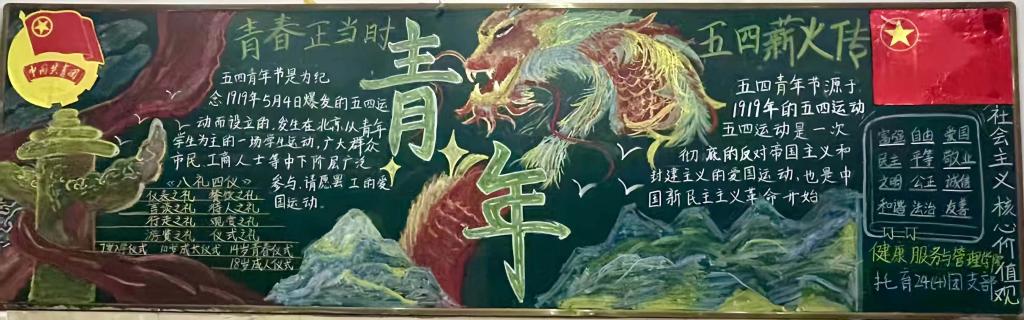 中国共青团
青春正当时
五四青年节是为纪
念1919年5月4日爆发的五四运
动而设立的,发生在北京,以青年
学生为主的一场学生运动,广大群众
市民、工商人士等中下阶层广泛
参与,请愿罢工的爱
国运动。
《八礼四仪》
仪表之礼 餐饮之礼
言谈之礼 待人之礼
行走之礼 观赏之礼
游览之礼 仪式之礼
7岁入学仪式 10岁成长仪式 14岁青春仪式
18岁成人仪式
青年
五四薪火传
五四青年节源于
1919年的五四运动
五四运动是一次
彻底的反对帝国主义和
封建主义的爱国运动,也是中
国新民主主义革命开始
富强 自由 爱国
民主 平等 敬业
文明 公正 诚信
和谐 法治 友善
社会主义核心价值观
健康服务与管理学院
托育24(4)团支部